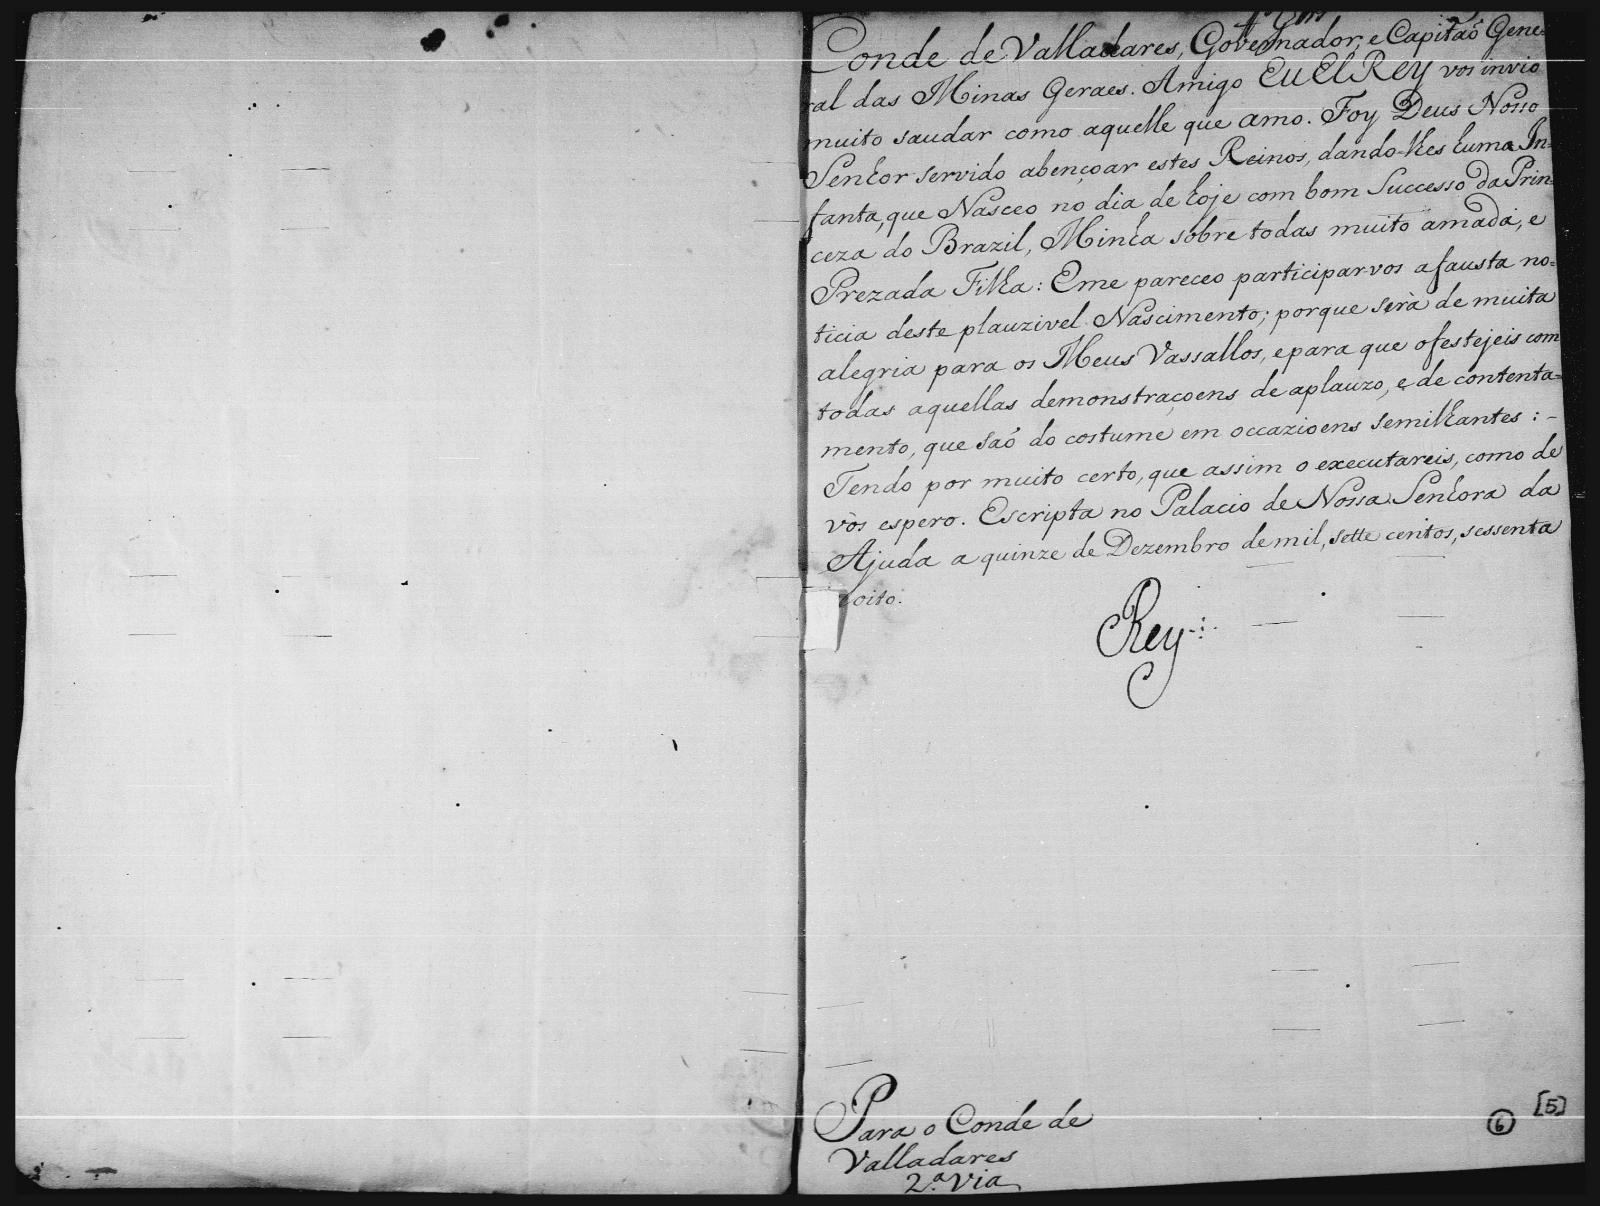 Conde de Valladares, Governador, e Capitaõ Gene-
ral das Minas Geraes. Amigo EU ElREY vos invio
muito saudar como aquelle que amo. Foy Deus Nosso
Senhor servido abençoar estes Reinos, dando-lhes huma In-
fanta, que Nasceo no dia de hoje com bom Successo da Prin-
ceza do Brazil, Minha sobre todas muito amada, e
Prezada Filha: Eme pareceo participar-vos a fausta no=
ticia deste plauzivel Nascimento; porque serà de muita
alegria para os Meus Vassallos, epara que ofestejeis com
todas aquellas demonstraçoens de aplauzo, e de contenta=
mento, que saõ do costume em occazioens semilhantes: -
Tendo por muito certo, que assim o executareis, como de
vòs espero. Escripta no Palacio de Nossa Senhora da
Ajuda a quinze de Dezembro demil, sette centos, sessenta
e oito.
Rey
Para o Conde de
Valladares
2.ª Via
6
[5]